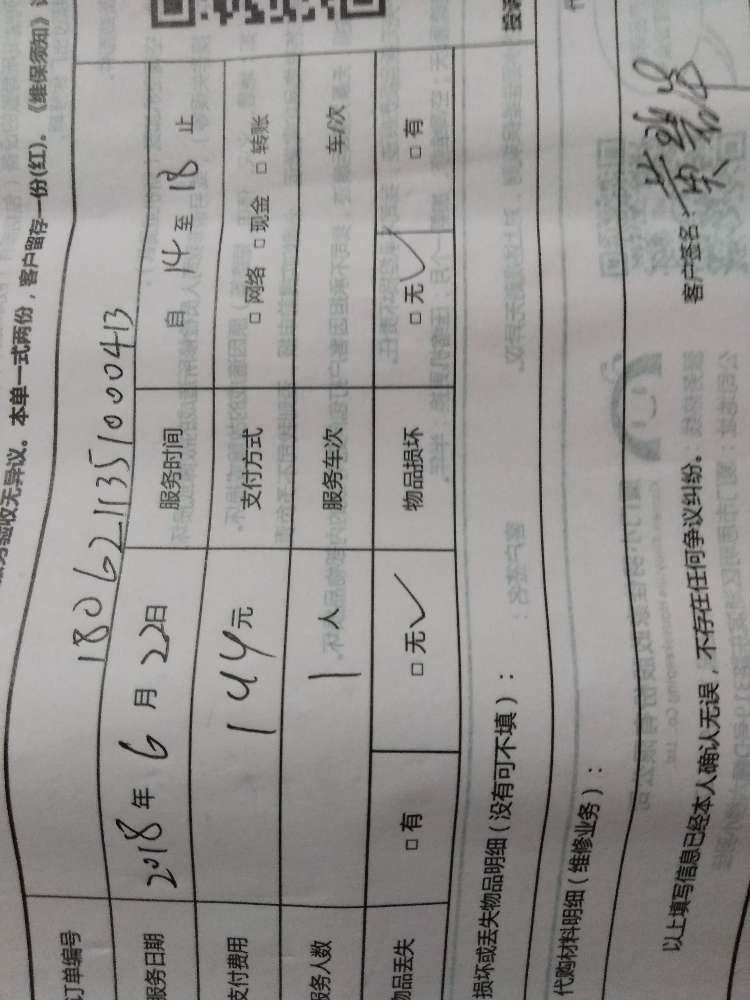 验收无异议。本单一式两份，客户留存一份(红)。《维保须知》
订单编号 1806211351000413
服务日期 2018年6月22日 服务时间 自14至18止
支付费用 144元 支付方式 □ 网络 □ 现金 □ 转账
服务人数 1人 服务车次 车/次
物品丢失 □ 有 □ 无✓ 物品损坏 □ 无✓ □ 有
损坏或丢失物品明细（没有可不填）：
代购材料明细（维修业务）：
以上填写信息已经本人确认无误，不存在任何争议纠纷。 客户签名：